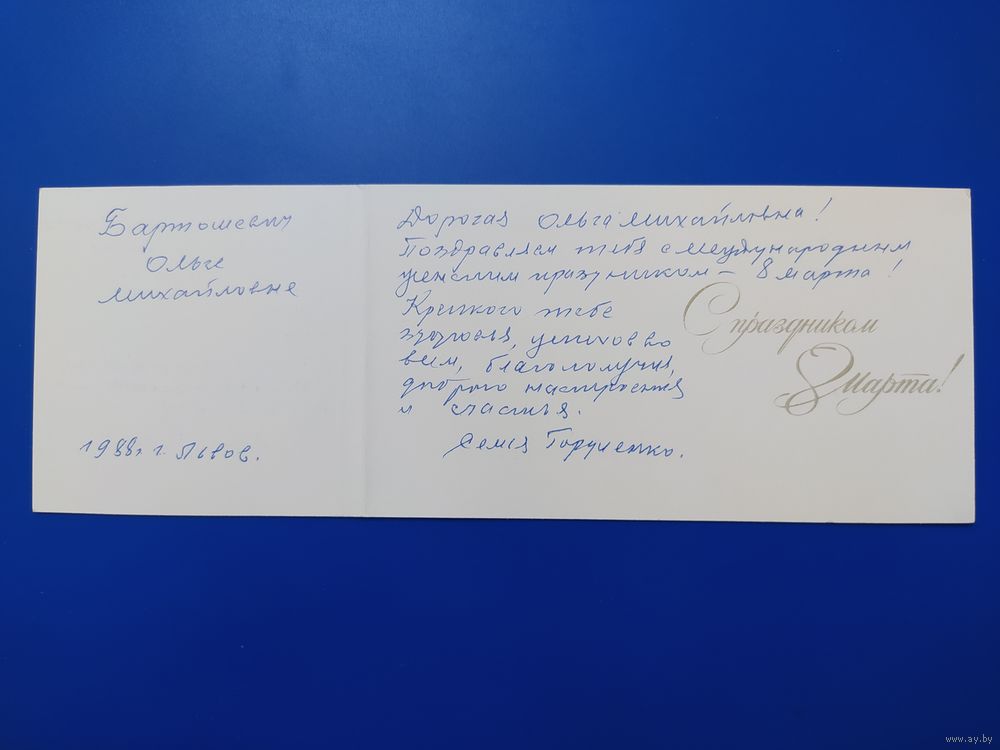 Бартошевич
Ольге
Михайловне
1988. г. Львов.
Дорогая Ольга Михайловна!
Поздравляем тебя с Международным
женским праздником – 8 марта!
Крепкого тебе
здоровья, успехов во
всем, благополучия,
доброго настроения
и счастья.
Семья
С праздником
8 Марта!
www.ay.by